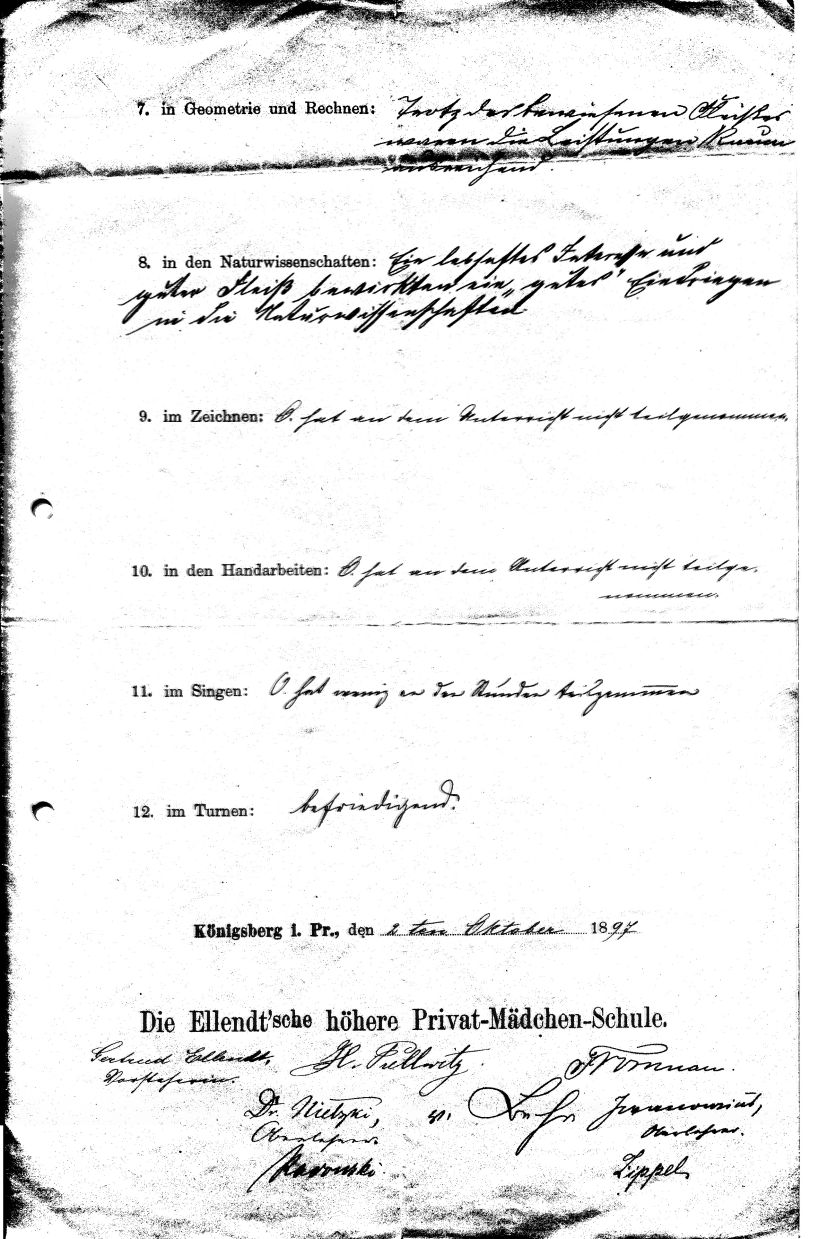 7. in Geometrie und Rechnen: Trotz des bewiesenen Fleißes
waren die Leistungen kaum
ausreichend.
8. in den Naturwissenschaften: Ein lebhaftes Interesse und
guter Fleiß bewirkten ein "gutes" Eindringen
in die Naturwissenschaften
9. im Zeichnen: O. hat an dem Unterricht nicht teilgenommen.
10. in den Handarbeiten: O. hat an dem Unterricht nicht teilge-
nommen.
11. im Singen: O. hat wenig an den Stunden teilgenommen
12. im Turnen: befriedigend.
Königsberg i. Pr., den 2 ten Oktober 1897
Die Ellendt'sche höhere Privat-Mädchen-Schule.
Gertrud Ellendt, H.
Vorsteherin.
Dr. Nietzki, v. Behr
Oberlehrer. Oberlehrer.
Zippel